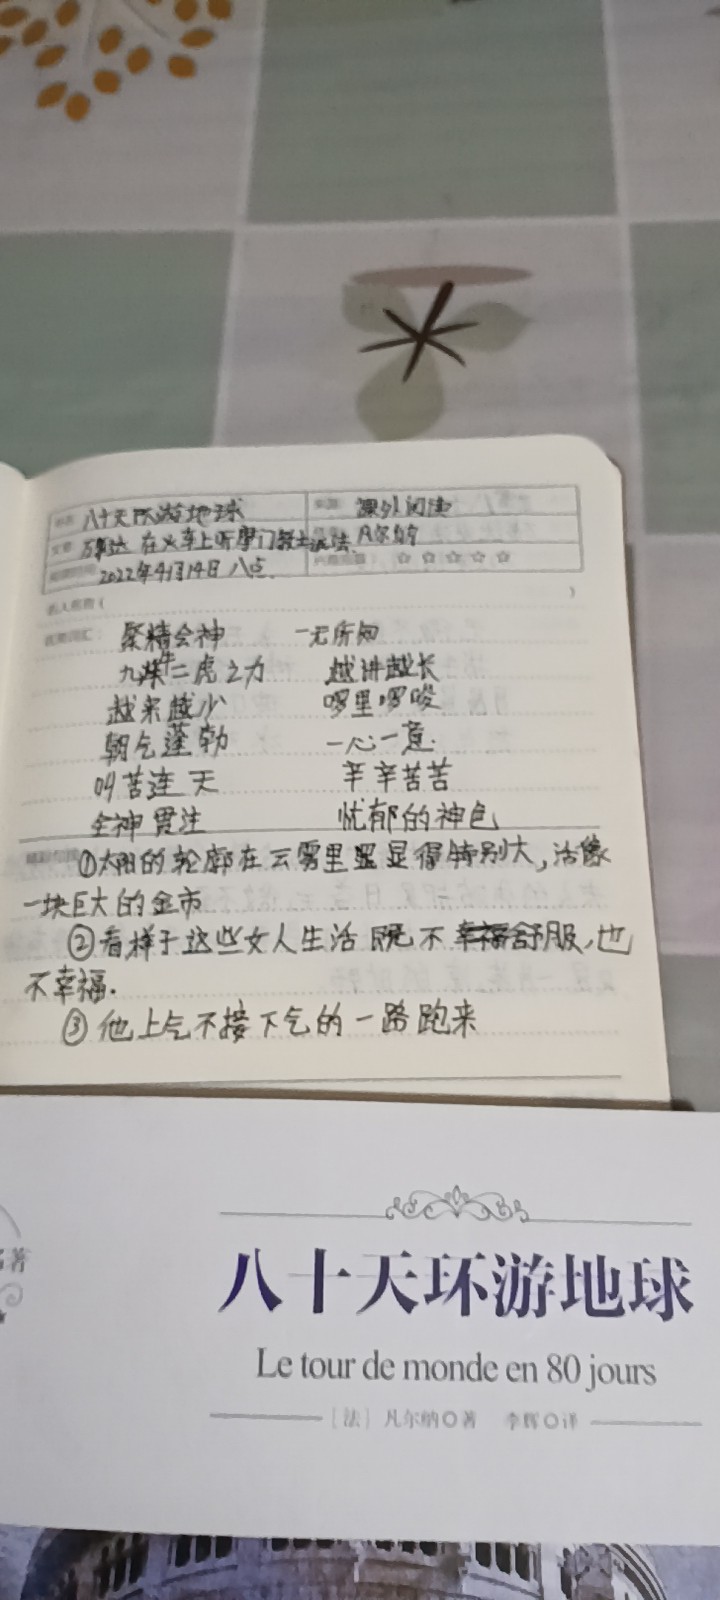 八十天环游地球 课外阅读
万事达 在火车上听摩门教士说法 凡尔纳
2022年4月14日 八点 ☆ ☆ ☆ ☆ ☆
名人名言（ ）
优美词汇： 聚精会神 一无所知
九牛二虎之力 越讲越长
越来越少 啰里啰唆
朝气蓬勃 一心一意.
叫苦连天 辛辛苦苦
全神贯注 忧郁的神色
①太阳的轮廓在云雾里显得特别大，活像
一块巨大的金币
②看样子这些女人生活既不幸福舒服，也
不幸福.
③他上气不接下气的一路跑来
名著
八十天环游地球
Le tour de monde en 80 jours
[法] 凡尔纳◎著 李辉◎译